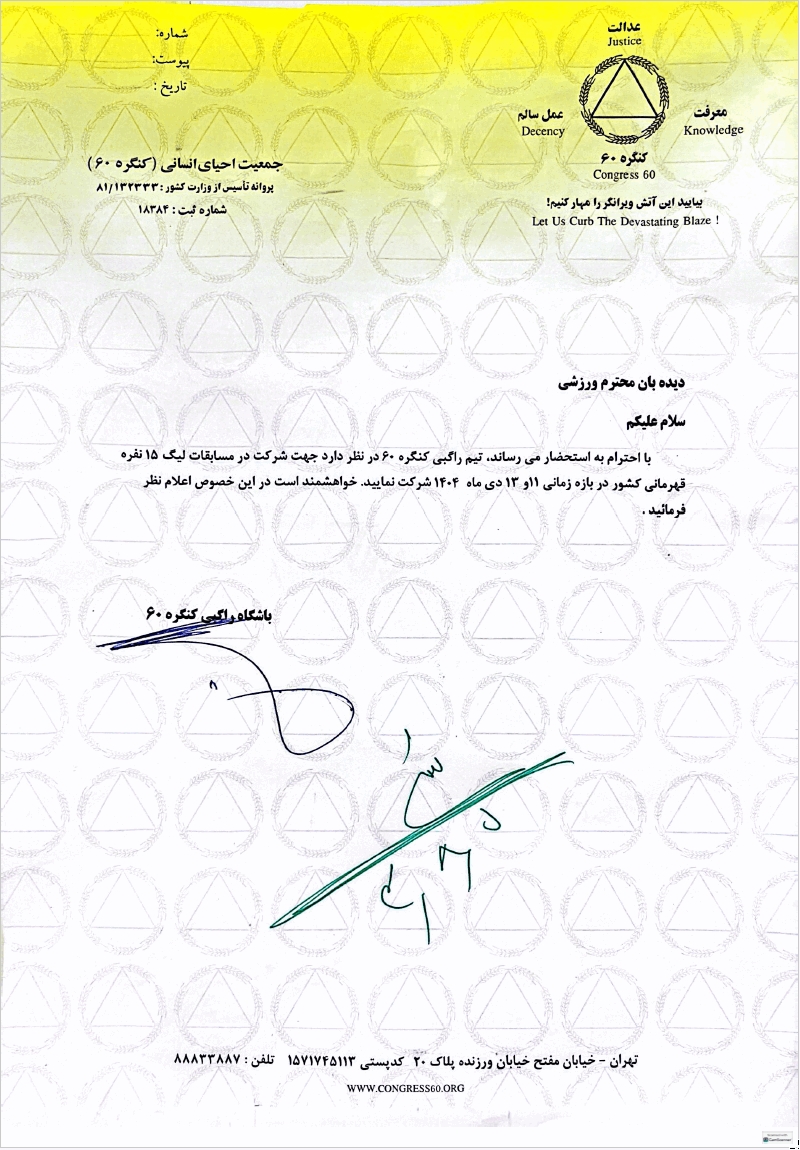 عدالت
Justice
عمل سالم
Decency
معرفت
Knowledge
کنگره ۶۰
Congress 60
بیایید این آتش ویرانگر را مهار کنیم!
Let Us Curb The Devastating Blaze !
شماره:
پیوست:
تاریخ :
جمعیت احیای انسانی (کنگره ۶۰)
پروانه تأسیس از وزارت کشور : ۸۱/۱۳۲۳۳۳
شماره ثبت : ۱۸۳۸۴
دیده بان محترم ورزشی
سلام علیکم
با احترام به استحضار می رساند، تیم راگبی کنگره ۶۰ در نظر دارد جهت شرکت در مسابقات لیگ ۱۵ نفره
قهرمانی کشور در بازه زمانی ۱۱و ۱۳ دی ماه ۱۴۰۴ شرکت نمایید. خواهشمند است در این خصوص اعلام نظر
فرمائید .
باشگاه راگبی کنگره ۶۰
تهران - خیابان مفتح خیابان ورزنده پلاک ۲۰ کدپستی ۱۵۷۱۷۴۵۱۱۳ تلفن : ۸۸۸۳۳۸۸۷
WWW.CONGRESS60.ORG
CamScanner